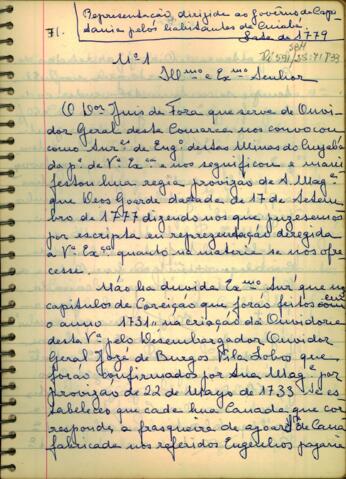 71.
Representação, dirigide ao Govêrno de Capi-
tania pelos habitantes de Cuiabá
Data de 1779
Nº 1
Illmo e Exmo Senhor
O Dor Juis de Fora que serve de Ouvi-
dor Geral desta Comarca nos convocou
como de Engo destas Minas do Cuyabá
da pe de Va Exca e nos significou e mani
festou hua regia provizão de S. Mage
que Deos Goarde datada de 17 de Setem
bro de 1777 dizendo nos que puzesemos
por escripta em reprezentação deregida
a Va Exca quanto na materia se nos ofre
cesse.
Não ha duvida Exmo Snr que nos
capitulos de Coreição que forão feitos em
o anno 1731 na criação da Ouvidoria
desta Va pelo Desembargador Ouvidor
Geral José de Burgos Vila Lobos que
forão confirmados por Sua Mage por
provizão de 22 de Mayo de 1733 se es-
tabeleceo que cada hua Canada que cor
responde a frasqueira de agoa de Cana
fabricada nos referidos Engenhos pagaria